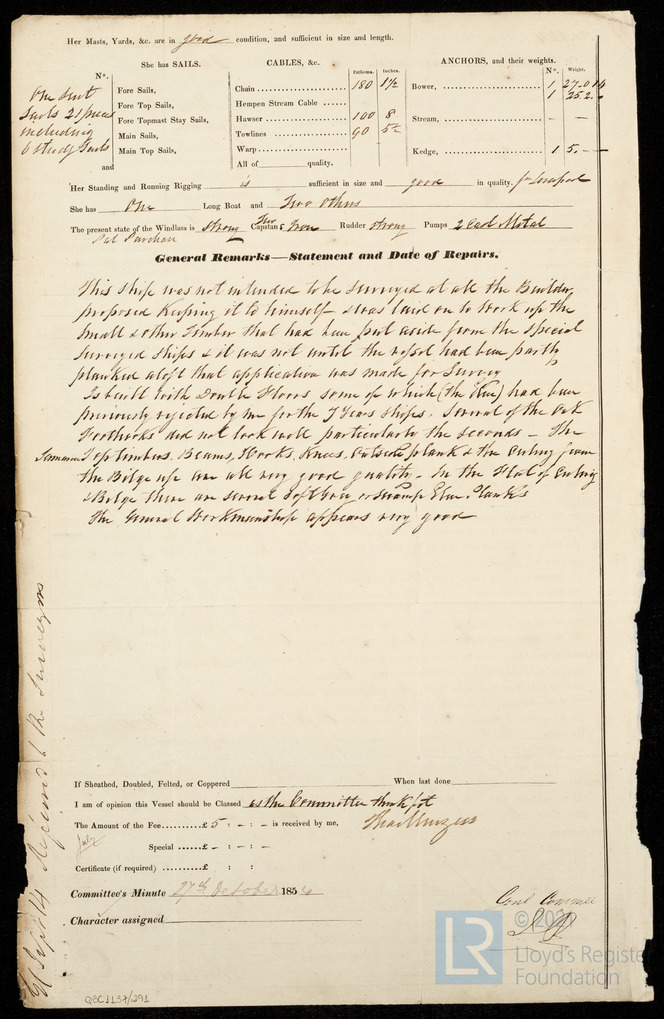 Her Masts, Yards, &c. are in good condition, and sufficient in size and length.
She has SAILS.
CABLES, &c.
ANCHORS, and their weights.
No.
Fathoms.
Inches.
No.
Weight.
One Suit
Sails 21 pieces
including
6 Study Sails
and
Fore Sails,
Fore Top Sails,
Fore Topmast Stay Sails,
Main Sails,
Main Top Sails,
Chain 180 1½
Hempen Stream Cable
Hawser 100 8
Towlines 90 5½
Warp
All of quality.
Bower, 1 27.0.14
1 25.2.-
Stream, — —
Kedge, 1 5.-.-
Her Standing and Running Rigging is sufficient in size and good in quality. fm Liverpool
She has One Long Boat and Two others
The present state of the Windlass is Strong Capstan Two Iron Rudder Strong Pumps 2 Metal
Pat Purchase
General Remarks—Statement and Date of Repairs.
This Ship was not intended to be Surveyed at all the Builder
proposed Keeping it to himself & was laid on to work up the
Small & other Timber that had been put aside from the Special
Surveyed Ships & it was not until the vessel had been partly
planked aloft that application was made for Survey
Is built with Double Floors some of which (the Elm) had been
previously rejected by me for the 7 Years Ships. Several of the Oak
Foothooks did not look well particularly the Seconds — The
Top timbers, Beams, Hooks, Knees, Outside plank & the Ceiling from
the Bilge up are all very good quality. In the Flat of Ceiling
& Bilge there are several Soft Grey or Swamp Elm Planks
The General Workmanship appears very good
If Sheathed, Doubled, Felted, or Coppered When last done
I am of opinion this Vessel should be Classed as the Committee think fit
The Amount of the Fee £ 5 : - : - is received by me,
Special £ - : - : -
Certificate (if required) £ : :
Committee's Minute 27th October 1854
Character assigned
QBC1137/291
LR
© 2020
Lloyd's Register
Foundation